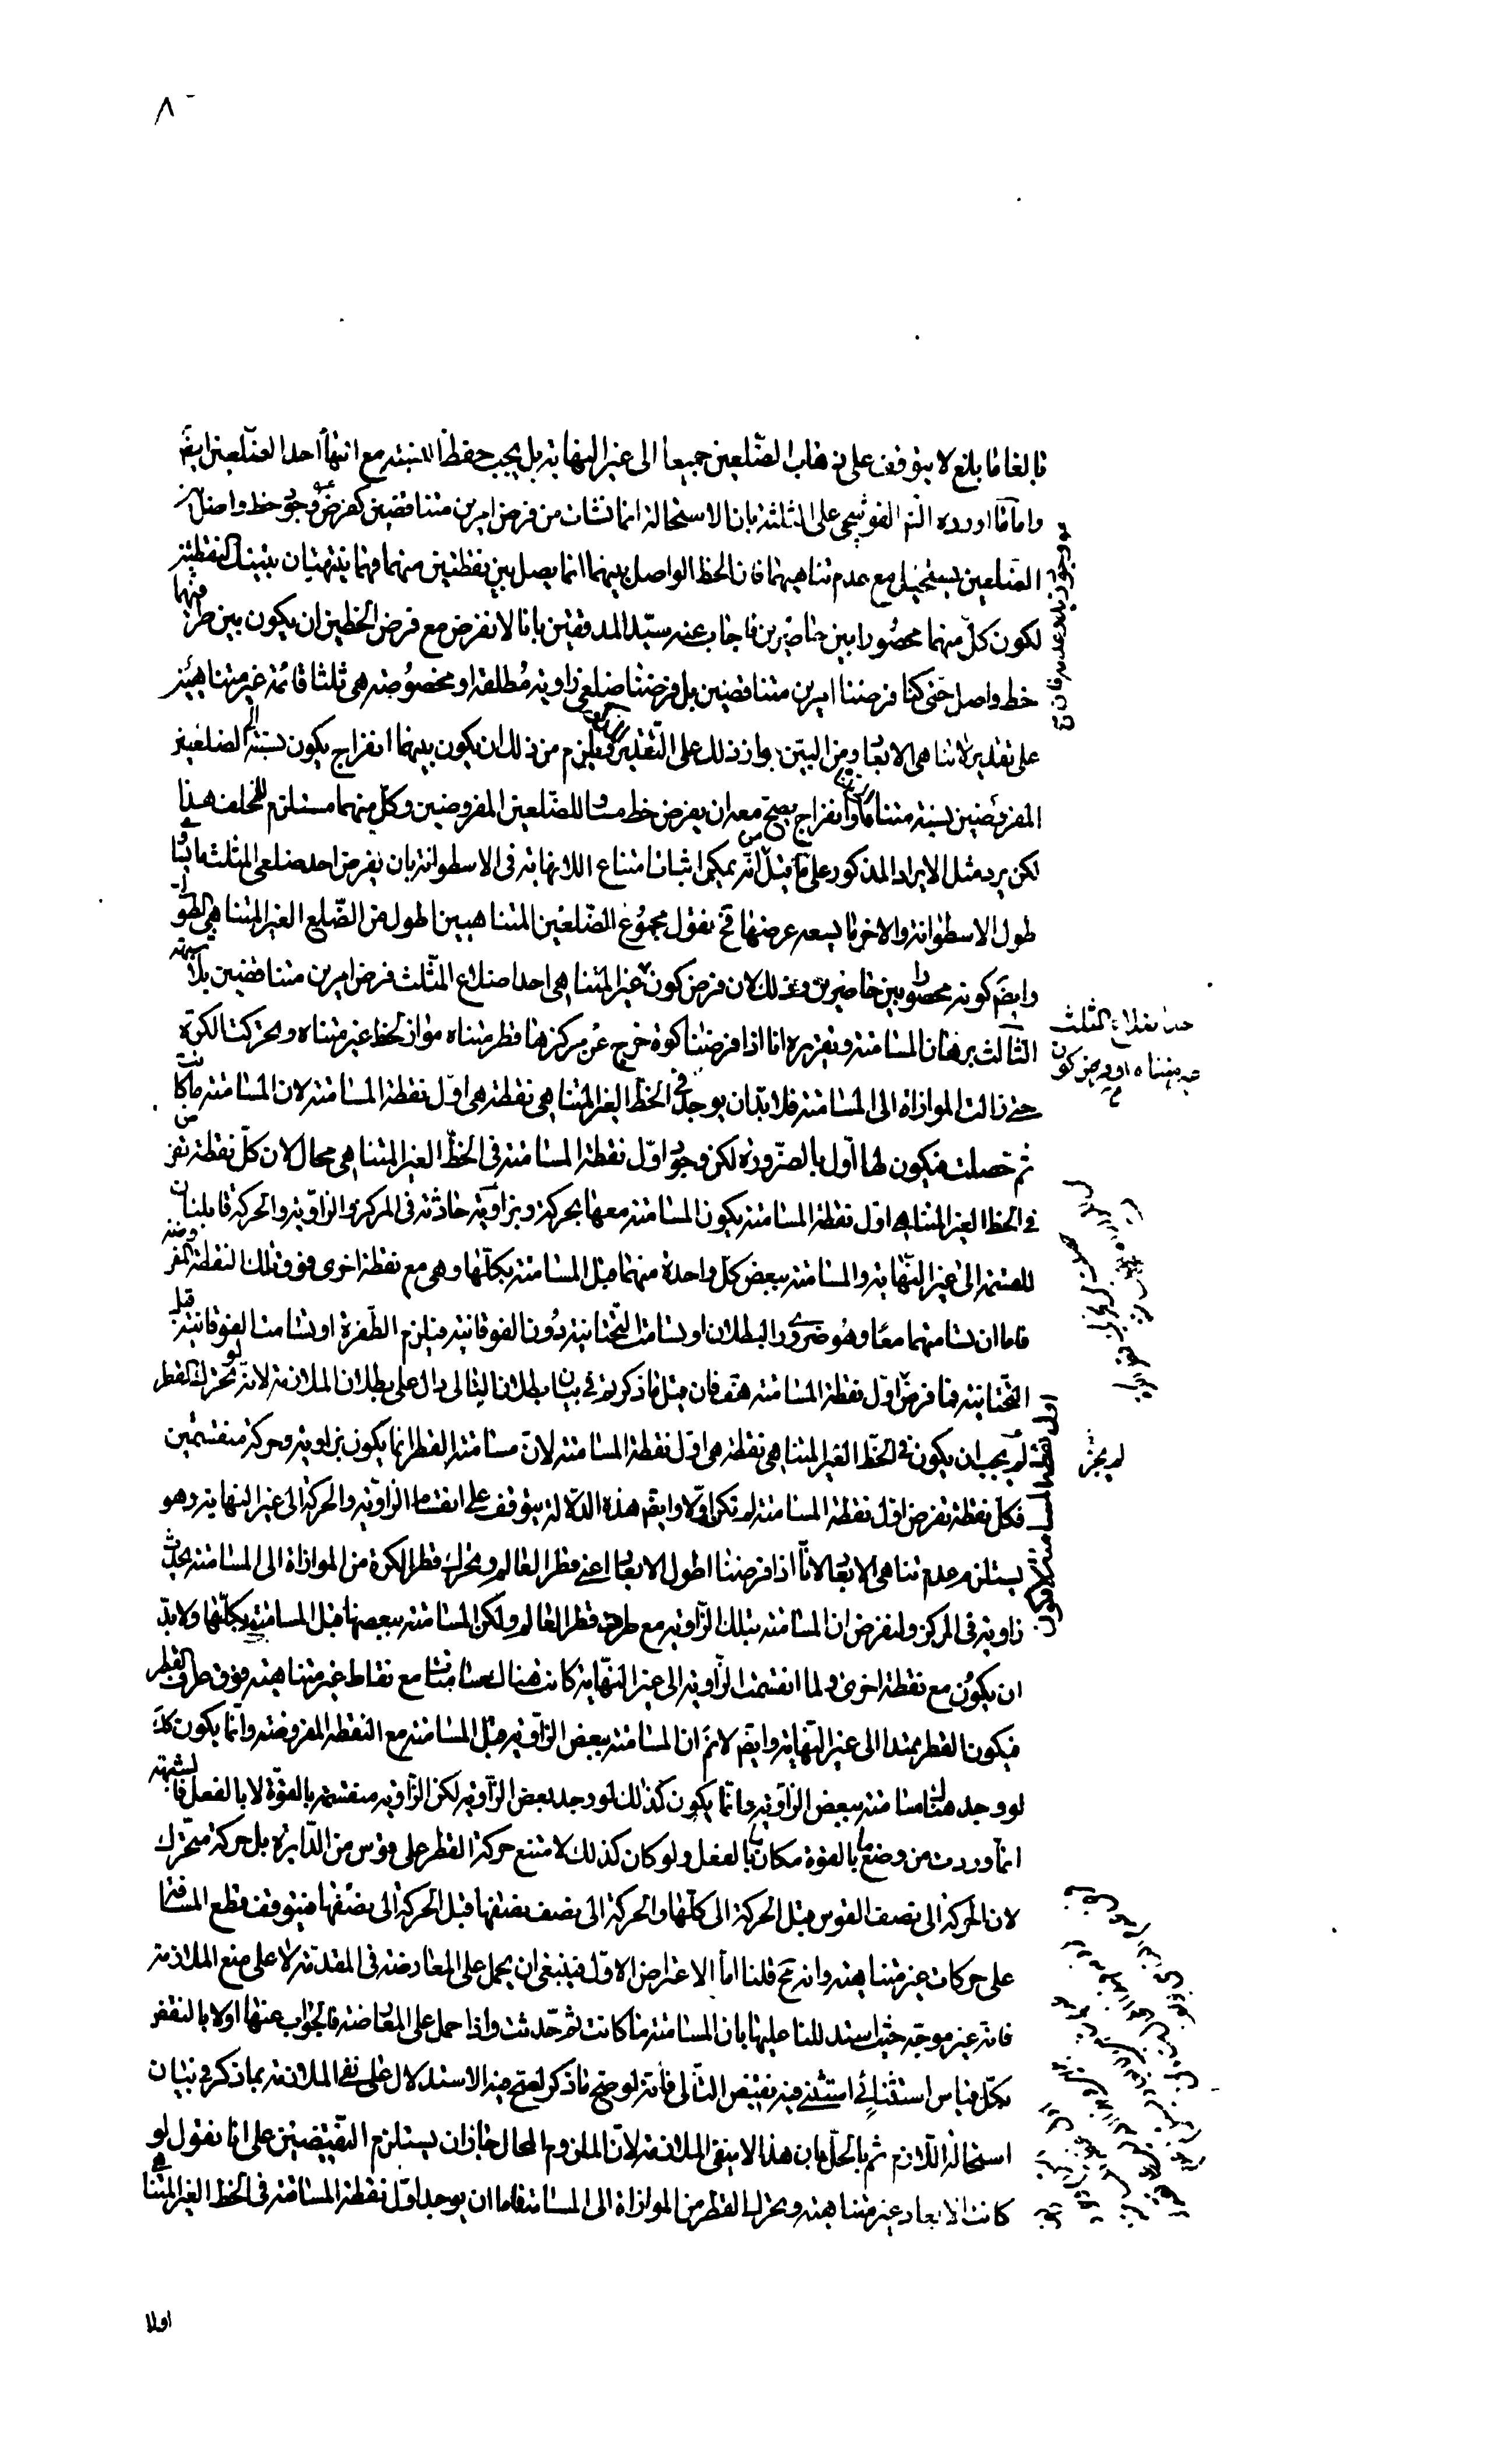 ٨
بالغا ما بلغ لا يتوقف على ذهاب الضلعين جميعا الى غير النهاية بل يجب حفظ النسبة مع انتهاء احد الضلعين ايضً
واما ما اورده الش القوشجى على الثلثة بان الاستحالة انما نشأت من فرض امرين متناقضين كفرض وجود خط واصل بين
الضلعين يستحيل مع عدم تناهيهما فان الخط الواصل بينهما انما يصل بين نقطتين منهما فهما ينتهيان بتينك النقطتين
لكون كل منهما محصورا بين حاضرين فاجاب عنه سيد المدققين بانا لا نفرض مع فرض الخطين ان يكون بين طرفيهما
خط واصل حتى كنا فرضنا امرين متناقضين بل فرضنا ضلعى زاوية مطلقة او مخصوصة هى ثلثا قائمة غير متناهيين
على تقدير لاتناهى الابعاد ومن البين جواز ذلك على التقدير ويلزم من ذلك ان يكون بينهما انفراج يكون نسبته الى الضلعين
المفروضين نسبة متناه او انفراج يصح معه ان يفرض خط مساو للضلعين المفروضين وكل منهما مستلزم للخلف هذا
لكن يرد مثل الايراد المذكور على ما قيل من انه يمكن اثبات امتناع اللانهاية فى الاسطوانة بان يفرض احد ضلعى المثلث ما يساوى
طول الاسطوانة والاخر ما يسعه عرضها فح نقول مجموع الضلعين المتناهيين اطول من الضلع الغير المتناهى الطول
وايضً كونه محصورا بين حاضرين وذلك لان فرض كون غير المتناهى احد اضلاع المثلث فرض امرين متناقضين بلا شبهة
الثالث برهان المسامتة وتقريره انا اذا فرضنا كرة خرج عن مركزها قطر متناه مواز لخط غير متناه وتحركت الكرة
حتى زالت الموازاة الى المسامتة فلا بد ان يوجد فى الخط الغير المتناهى نقطة هى اول نقطة المسامتة لان المسامتة ما كانت
ثم حصلت فيكون لها اول بالضرورة لكن وجود اول نقطة المسامتة فى الخط الغير المتناهى محال لان كل نقطة تفرض
فى الخط الغير المتناهى اول نقطة المسامتة يكون المسامتة معها بحركة وبزاوية حادثة فى المركز والزاوية والحركة قابلتان
للقسمة الى غير النهاية والمسامتة ببعض كل واحدة منهما قبل المسامتة بكلها وهى مع نقطة اخرى فوق تلك النقطة المفروضة
فاما ان يسامتهما معا وهو ضرورى البطلان او يسامت التحتانية دون الفوقانية فيلزم الطفرة او يسامت الفوقانية قبل
التحتانية فما فرض اول نقطة المسامتة هف فان قيل ما ذكرتم فى بيان بطلان التالى دال على بطلان الملازمة لانه لو تحرك القطر
لم يجب ان يكون فى الخط الغير المتناهى نقطة هى اول نقطة المسامتة لان مسامتة القطر انما يكون بزاوية وحركة منقسمتين
فكل نقطة تفرض اول نقطة المسامتة لم تكن اولا وايضً هذه الدلالة يتوقف على انقسام الزاوية والحركة الى غير النهاية وهو
يستلزم عدم تناهى الابعاد لانا اذا فرضنا اطول الابعاد اعنى قطر العالم وتحرك قطر الكرة من الموازاة الى المسامتة يحدث
زاوية فى المركز ولنفرض ان المسامتة بتلك الزاوية مع طرف قطر العالم ولكن المسامتة ببعضها قبل المسامتة بكلها ولا بد
ان يكون مع نقطة اخرى ولما انقسمت الزاوية الى غير النهاية كانت هناك مسامتات مع نقاط غير متناهية فوق طرف القطر
فيكون القطر ممتدا الى غير النهاية وايضً لانم ان المسامتة ببعض الزاوية قبل المسامتة مع النقطة المفروضة وانما يكون كك
لو وجد هناك مسامتة ببعض الزاوية وانما يكون كذلك لو وجد بعض الزاوية لكن الزاوية منقسمة بالقوة لا بالفعل فالشبهة
انما وردت من وضع ما بالقوة مكان ما بالفعل ولو كان كذلك لامتنع حركة القطر على قوس من الدائرة بل حركة متحرك
لان الحركة الى نصف القوس قبل الحركة الى كلها والحركة الى نصف نصفها قبل الحركة الى نصفها فيتوقف قطع المسافة
على حركات غير متناهية وانه مح قلنا اما الاعتراض الاول فينبغى ان يحمل على المعارضة فى المقدمة لا على منع الملازمة
فانه غير موجه حيث استدللنا عليها بان المسامتة ما كانت ثم حدثت واذا حمل على المعارضة فالجواب عنها اولا بالنقض
بكل قياس استثنائى استثنى فيه نقيض التالى فانه لو صح ما ذكر لصح فيه الاستدلال على نفى الملازمة بما ذكر فى بيان
استحالة اللازم ثم بالحل بان هذا لا ينفى الملازمة لان الملزوم المحال جاز ان يستلزم النقيضين على انا نقول لو
كانت الابعاد غير متناهية وتحرك القطر من الموازاة الى المسامتة فاما ان يوجد اول نقطة المسامتة فى الخط الغير المتناهى
اولا